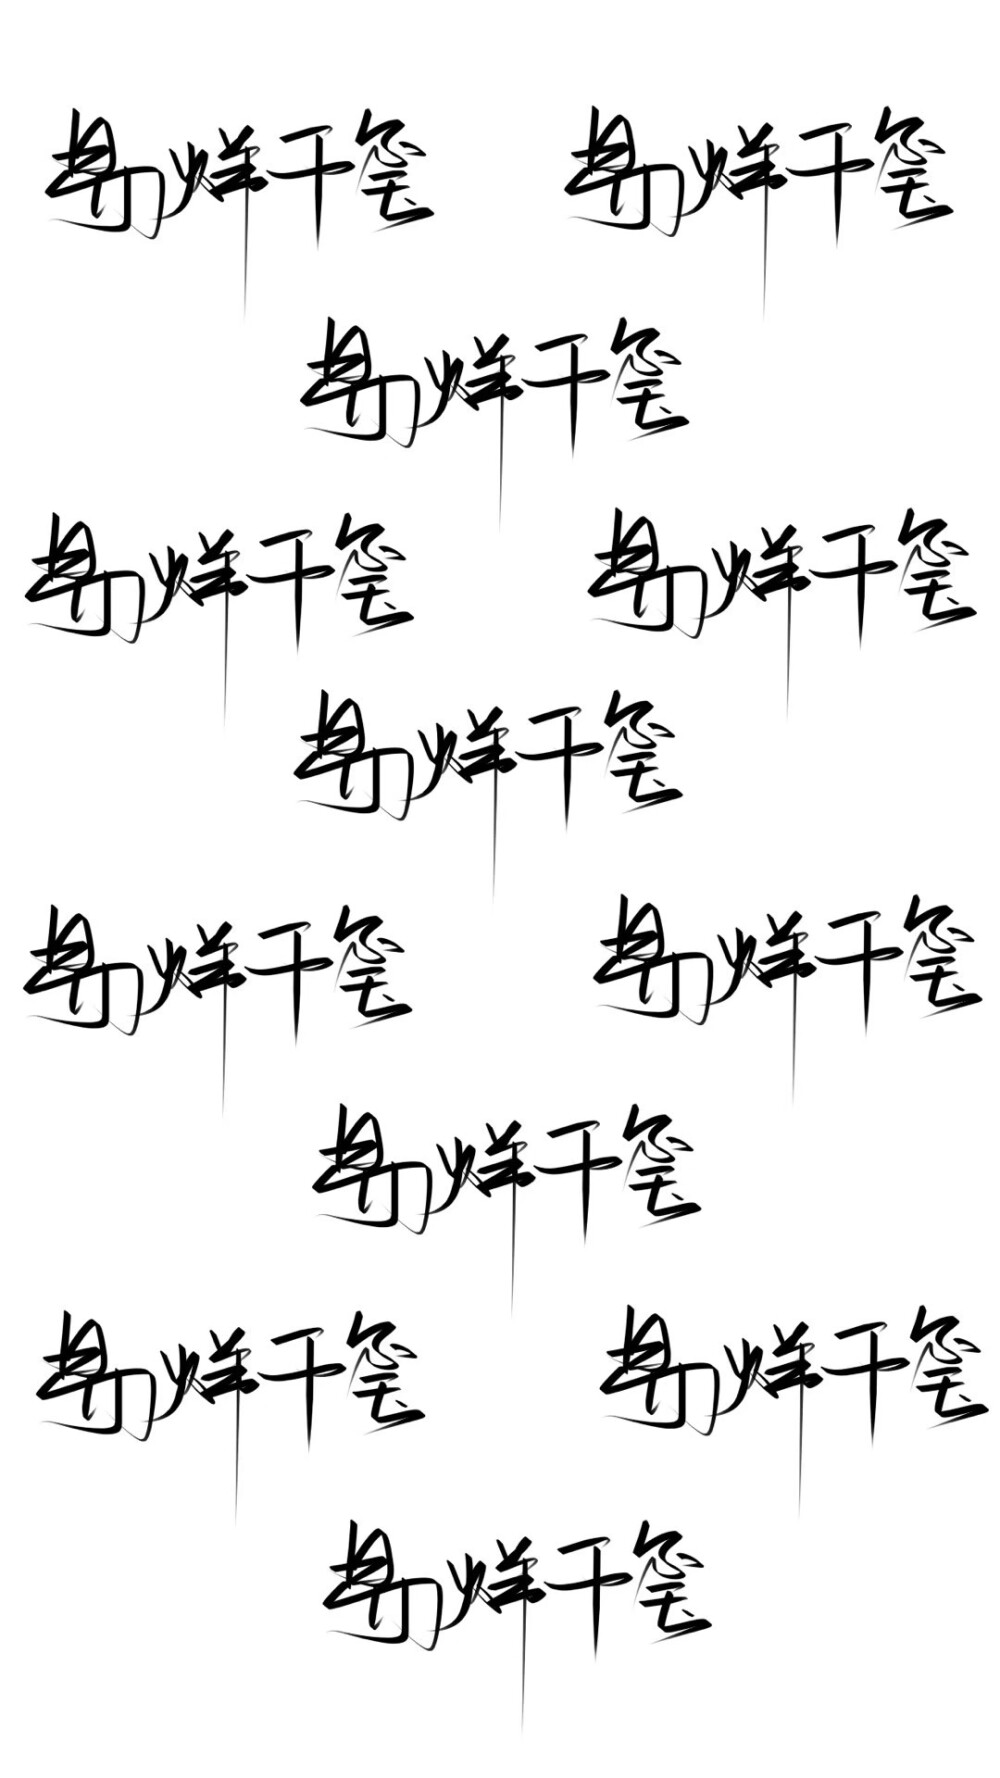 易烊千玺 易烊千玺
易烊千玺
易烊千玺 易烊千玺
易烊千玺
易烊千玺 易烊千玺
易烊千玺
易烊千玺 易烊千玺
易烊千玺